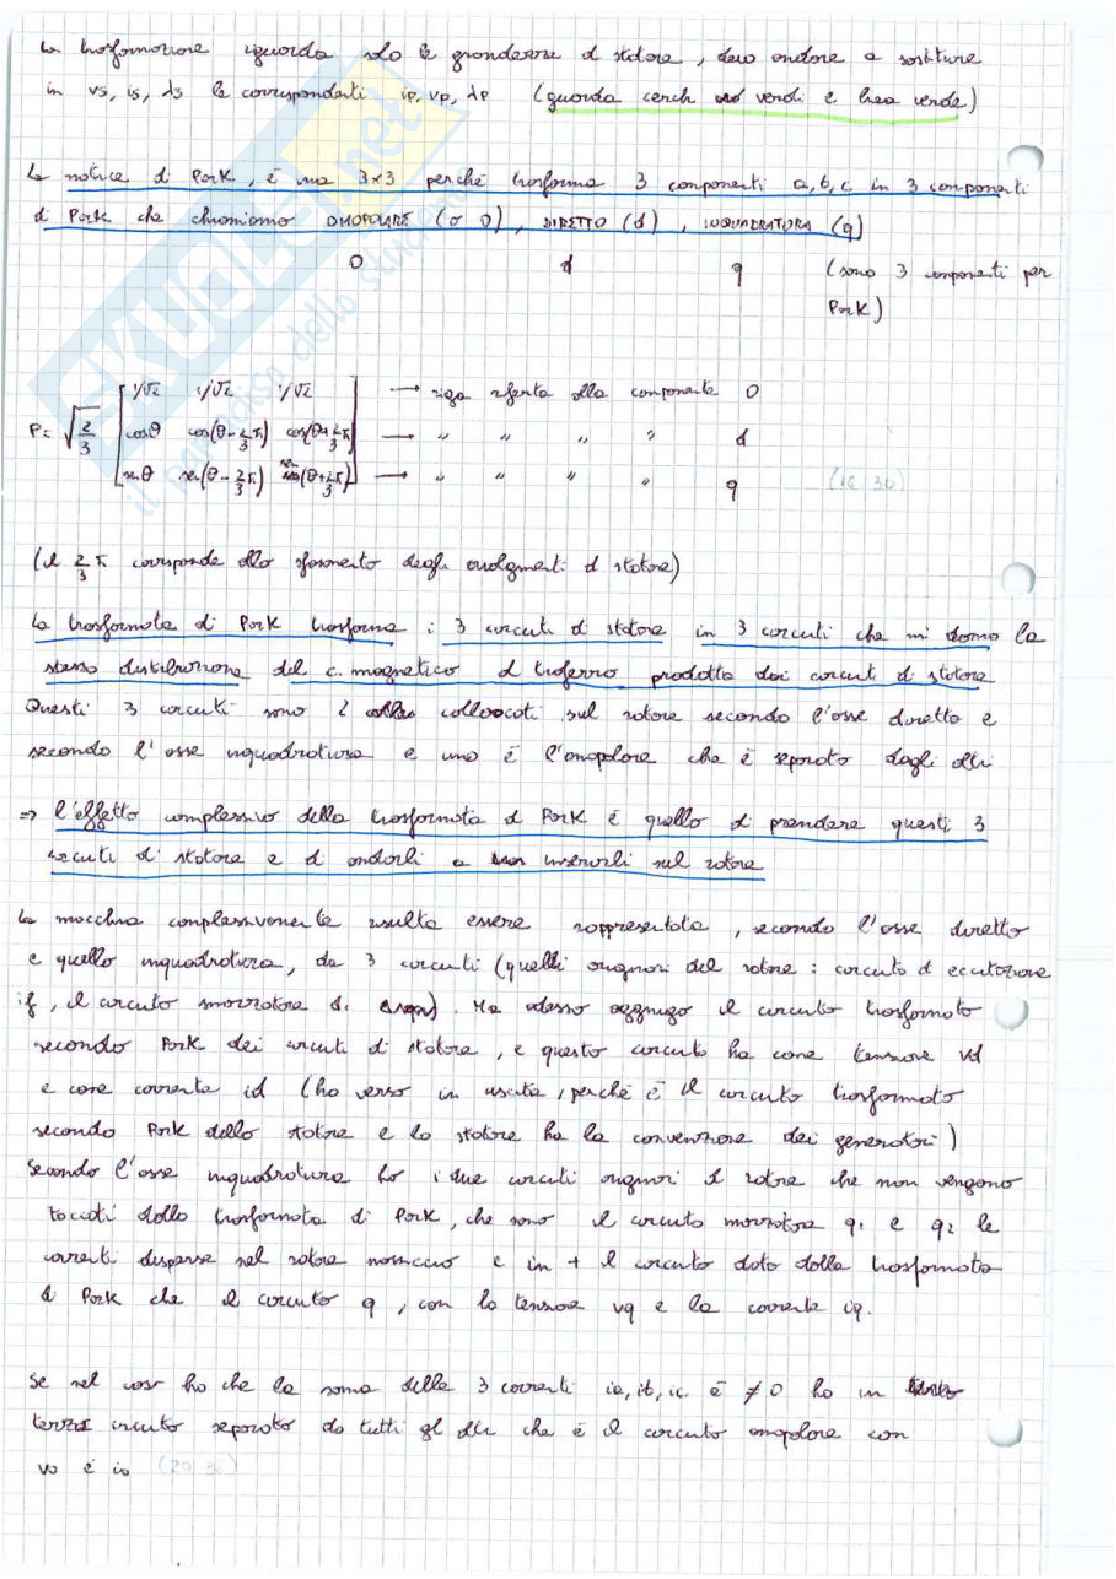 La trasformazione riguarda solo le grandezze di statore, devo andare a sostituire
in vs, is, λs le corrispondenti ip, vp, λp (guarda cerchi verdi e linea verde)
La matrice di Park, è una 3x3 perché trasforma 3 componenti a, b, c in 3 componenti
di Park che chiamiamo OMOPOLARE (o 0), DIRETTO (d), INQUADRATURA (q)
0 d q (sono 3 componenti per
Park)
P = √2/3 [ 1/√2 1/√2 1/√2 ] → riga riferita alla componente 0
cosθ cos(θ-2/3π) cos(θ+2/3π) → " " " " d
senθ sen(θ-2/3π) sen(θ+2/3π) → " " " " q
(il 2/3 π corrisponde allo sfasamento degli avvolgimenti di statore)
La trasformata di Park trasforma: 3 circuiti di statore in 3 circuiti che mi danno la
stessa distribuzione del c. magnetico al traferro prodotta dai circuiti di statore
Questi 3 circuiti sono 2 collocati sul rotore secondo l'asse diretto e
secondo l'asse inquadratura e uno è l'omopolare che è separato dagli altri
⇒ l'effetto complessivo della trasformata di Park è quello di prendere questi 3
circuiti di statore e di andarli a inserirli nel rotore
La macchina complessivamente risulta essere rappresentata, secondo l'asse diretto
e quello inquadratura, da 3 circuiti (quelli originari del rotore: circuito di eccitazione
if, il circuito smorzatore di). Ma adesso aggiungo il circuito trasformato
secondo Park dei circuiti di statore, e questo circuito ha come tensione vd
e come corrente id (ha verso in uscita, perché è il circuito trasformato
secondo Park dello statore e lo statore ha la convenzione dei generatori)
Secondo l'asse inquadratura ho i due circuiti originari di rotore che non vengono
toccati dalla trasformata di Park, che sono il circuito smorzatore q1 e q2 le
correnti disperse nel rotore massiccio e in + il circuito dato dalla trasformata
di Park che il circuito q, con la tensione vq e la corrente iq.
Se nel caso ho che la somma delle 3 correnti ia, ib, ic è ≠ 0 ho un
terzo circuito separato da tutti gli altri che è il circuito omopolare con
vo e io